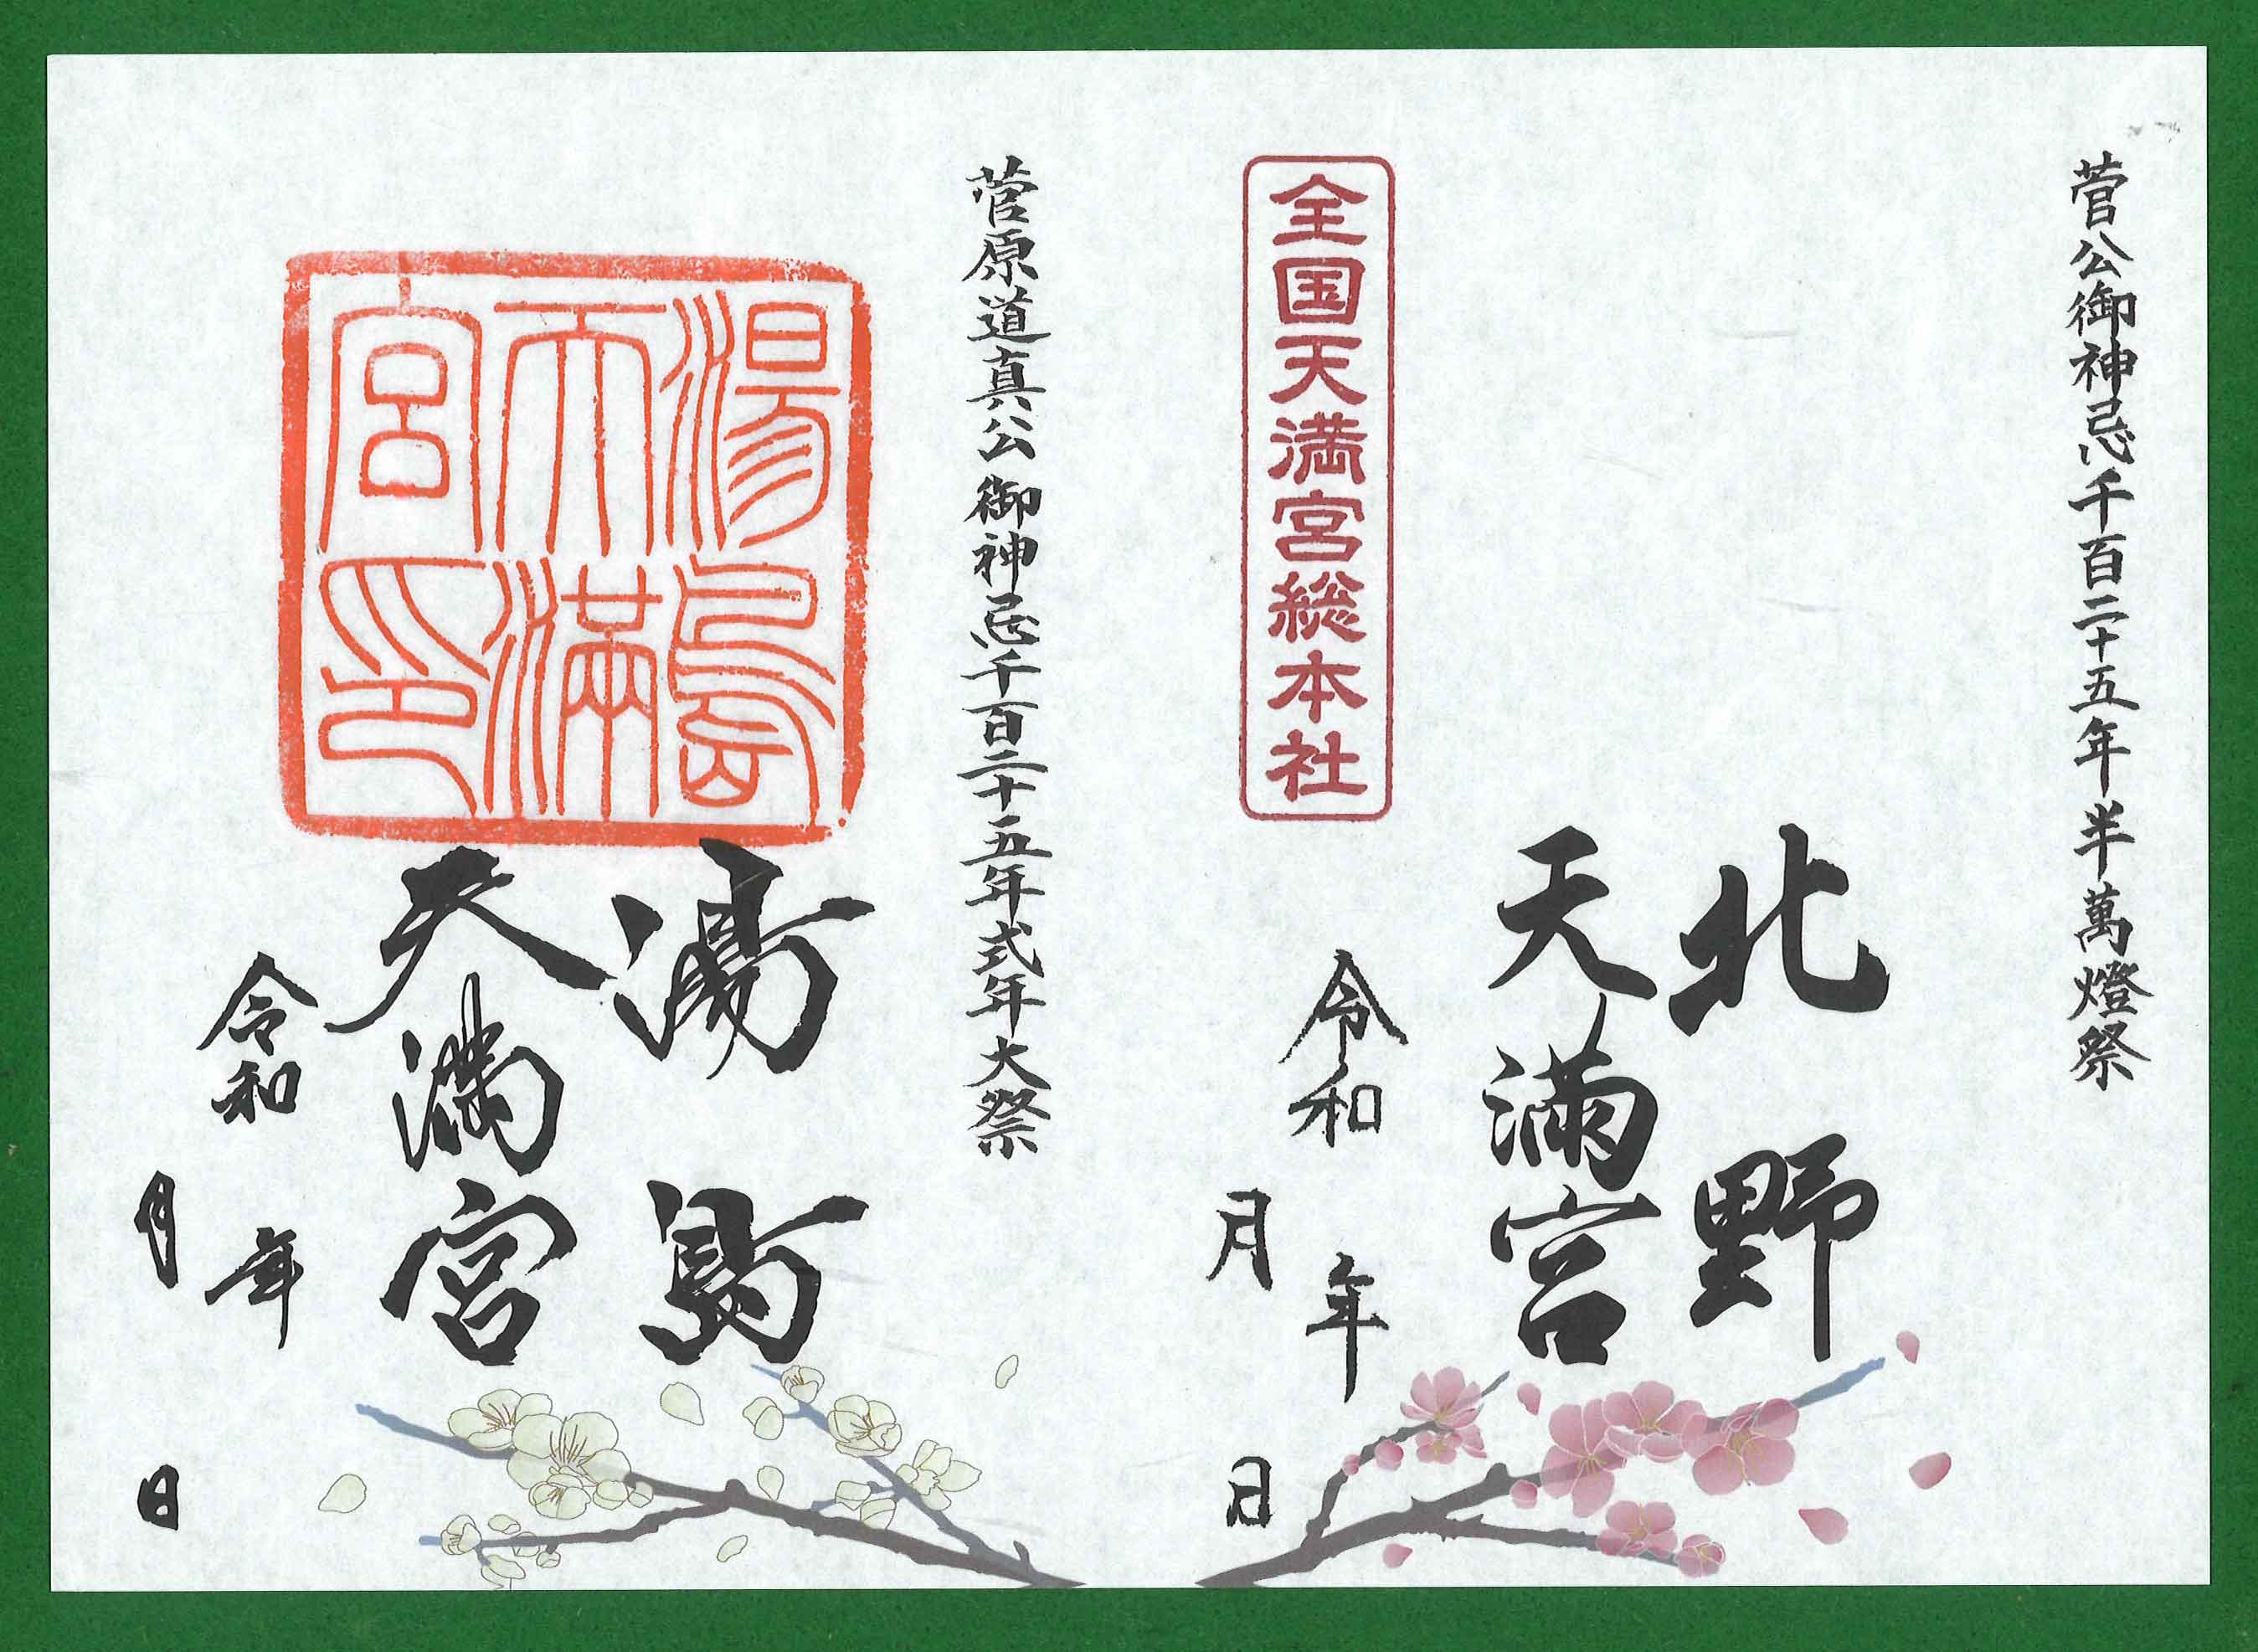 菅公御神忌千百二十五年半萬燈祭
北野
天満宮
全国天満宮総本社
令和
年
月
日
菅原道真公御神忌千百二十五年式年大祭
湯島
天満宮印
湯島
天満宮
令和
年
月
日